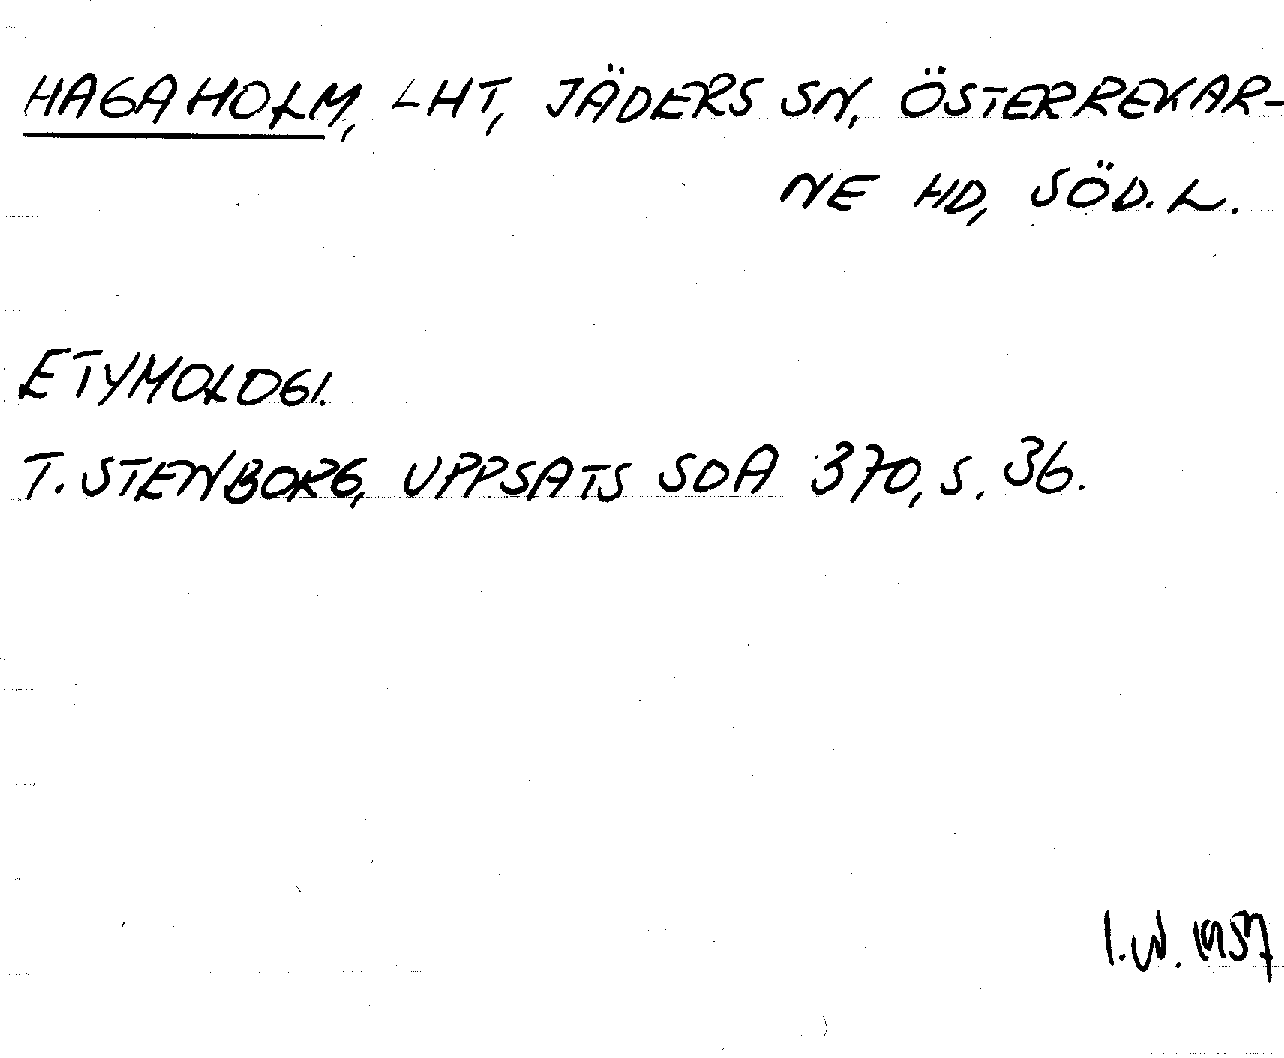 HAGAHOLM, LHT, JÄDERS SN, ÖSTERREKAR-
NE HD, SÖD.L.
ETYMOLOGI.
T. STENBORG, UPPSATS SOA 370, S. 36.
I.W. 1957